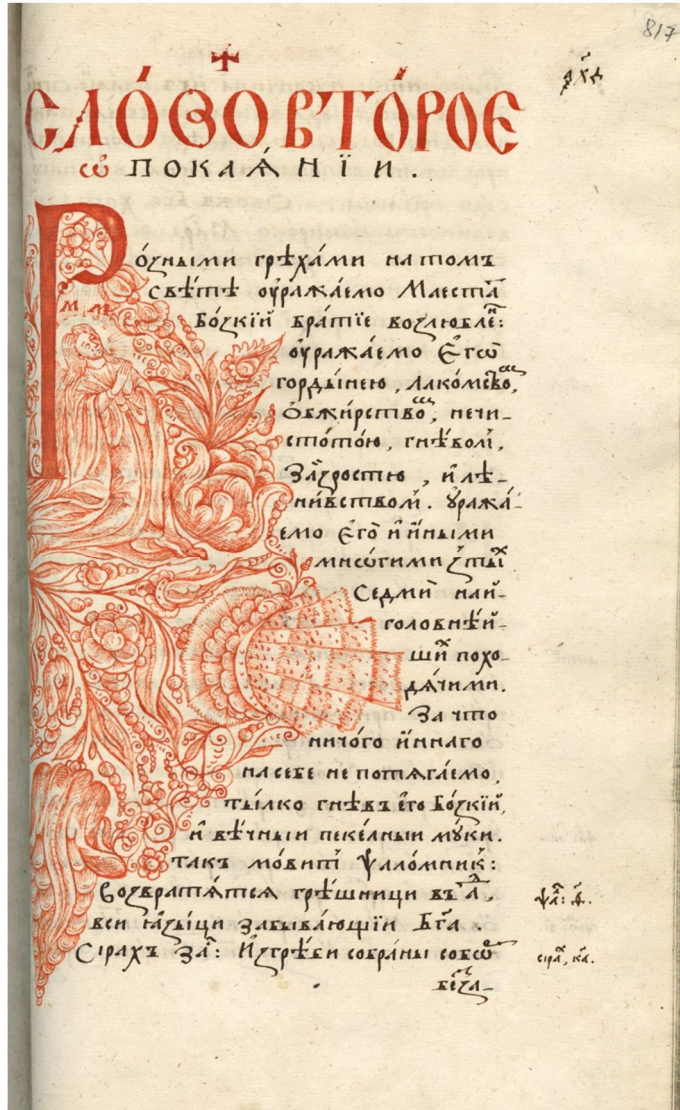 817
СЛО́ВО ВТО́РОЕ
ѿ ПОКАѦ́НЇИ.
Ро́зными грѣха́ми на томъ
свѣ́тѣ оуража́емо Маеста́
Бо́зкїй братїе возлюбле́:
оуража́емо Єгѡ̀
горды́нею, лако́мство,
Ѻбжи́рство, нечи-
сто́тою, гнѣ́вом,
За́здростю, и҆ лѣ-
ни́вством. ꙋража́-
емо Єго̀ и҆ и҆́ными
Седми̇ най-
головнѣ́й-
ши̇ похо-
дѧ́чими.
За что
ничо́го и҆́ннаго
на себе не потѧга́емо,
ты́лко гнѣ́въ єго̀ Бо́зкїй,
и҆ вѣ́чныи пеке́лныи мꙋ́ки.
такъ мо́вит ѱало́мник:
Возвратѧ́тсѧ грѣ́шници въ а́д,
вси ꙗ҆зы́ци забыва́ющїи Бг҃а.
Сїрахъ За: И҆згре́би собра́ны собѡ
беза-